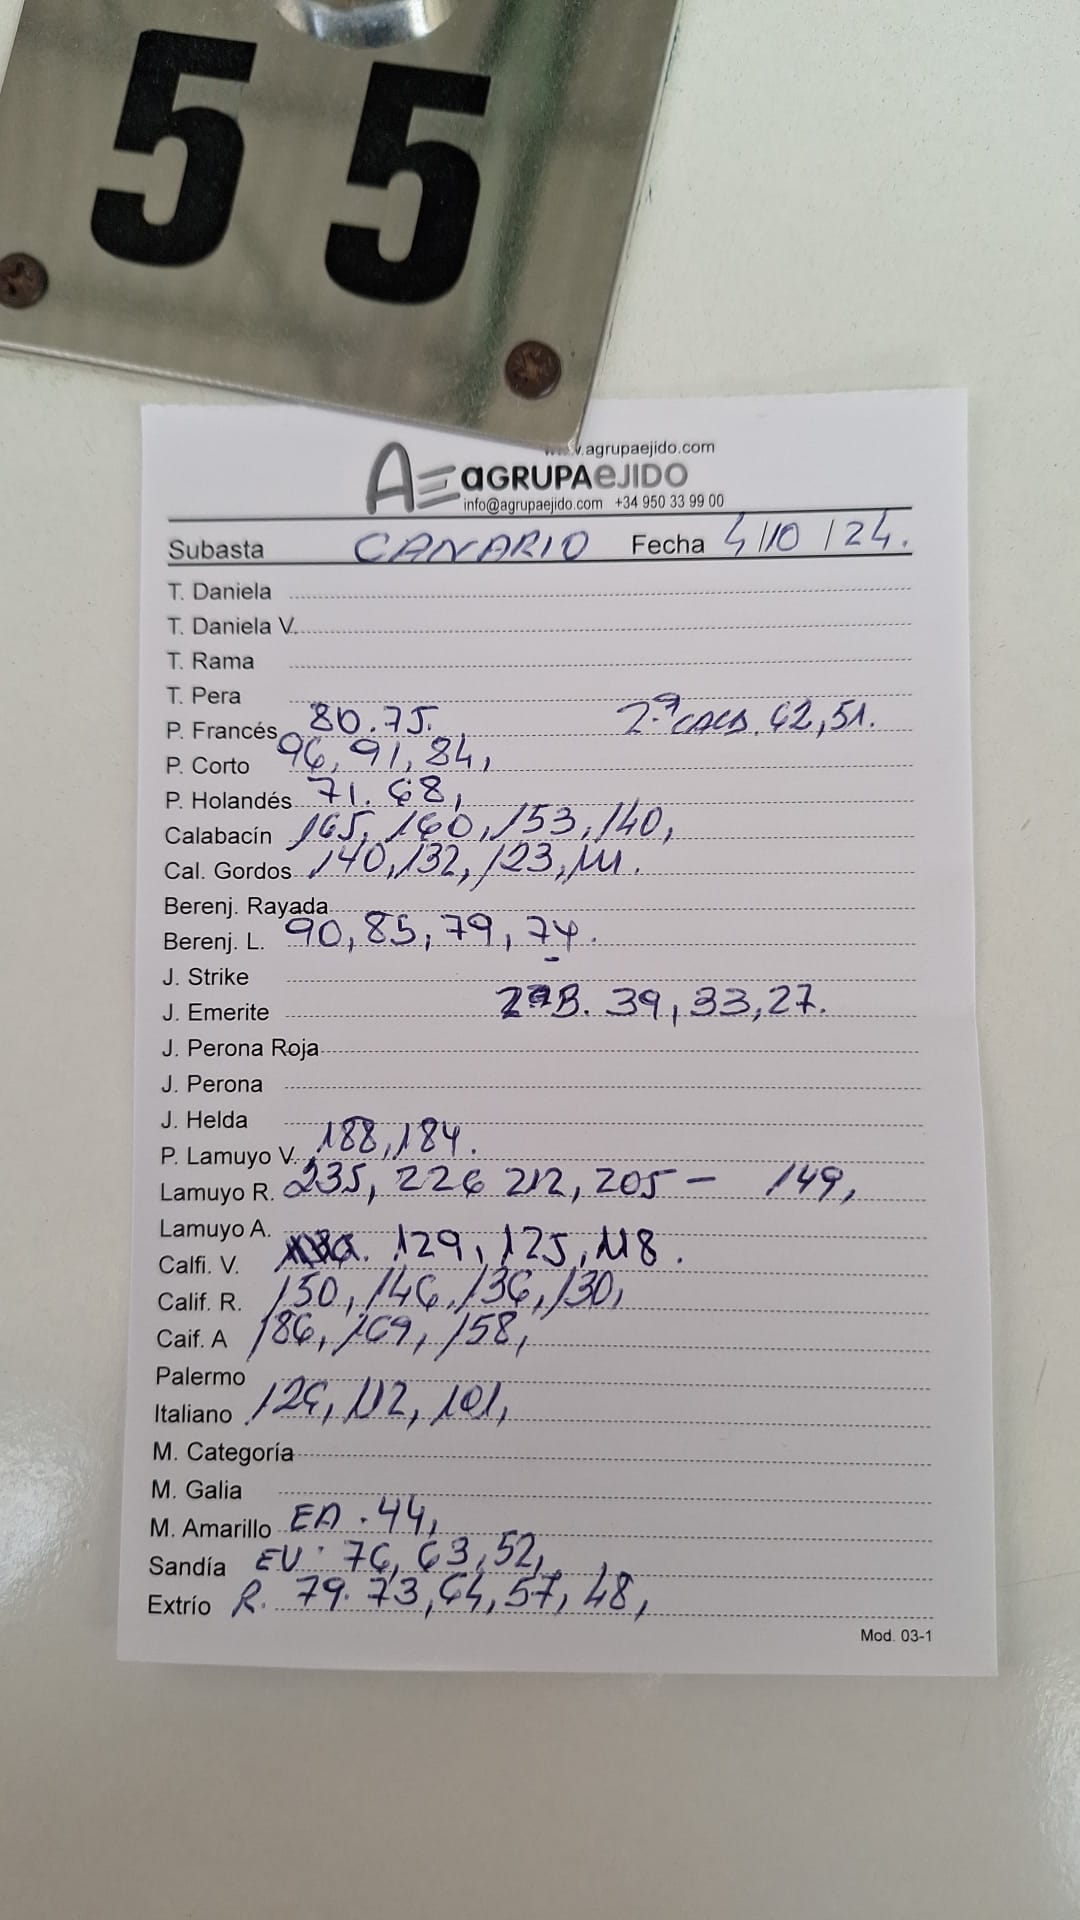 55
www.agrupaejido.com
AE aGRUPAeJIDO
info@agrupaejido.com +34 950 33 99 00
Subasta CANARIO Fecha 4/10/24.
T. Daniela
T. Daniela V.
T. Rama
T. Pera
P. Francés 80.75. 2ª CALAB. 62,51.
P. Corto 96, 91, 84,
P. Holandés 71. 68,
Calabacín 165, 160, 153, 140,
Cal. Gordos 140, 132, 123, 111.
Berenj. Rayada
Berenj. L. 90, 85, 79, 74.
J. Strike
J. Emerite 2ªB. 39, 33, 27.
J. Perona Roja
J. Perona
J. Helda
P. Lamuyo V. 188, 184.
Lamuyo R. 235, 226 212, 205 - 149,
Lamuyo A.
Calfi. V. 129, 125, 118.
Calif. R. 150, 146, 136, 130,
Caif. A 186, 169, 158,
Palermo
Italiano 126, 112, 101,
M. Categoría
M. Galia
M. Amarillo EA. 44,
Sandía EU. 76, 63, 52,
Extrío R. 79. 73, 64, 57, 48,
Mod. 03-1